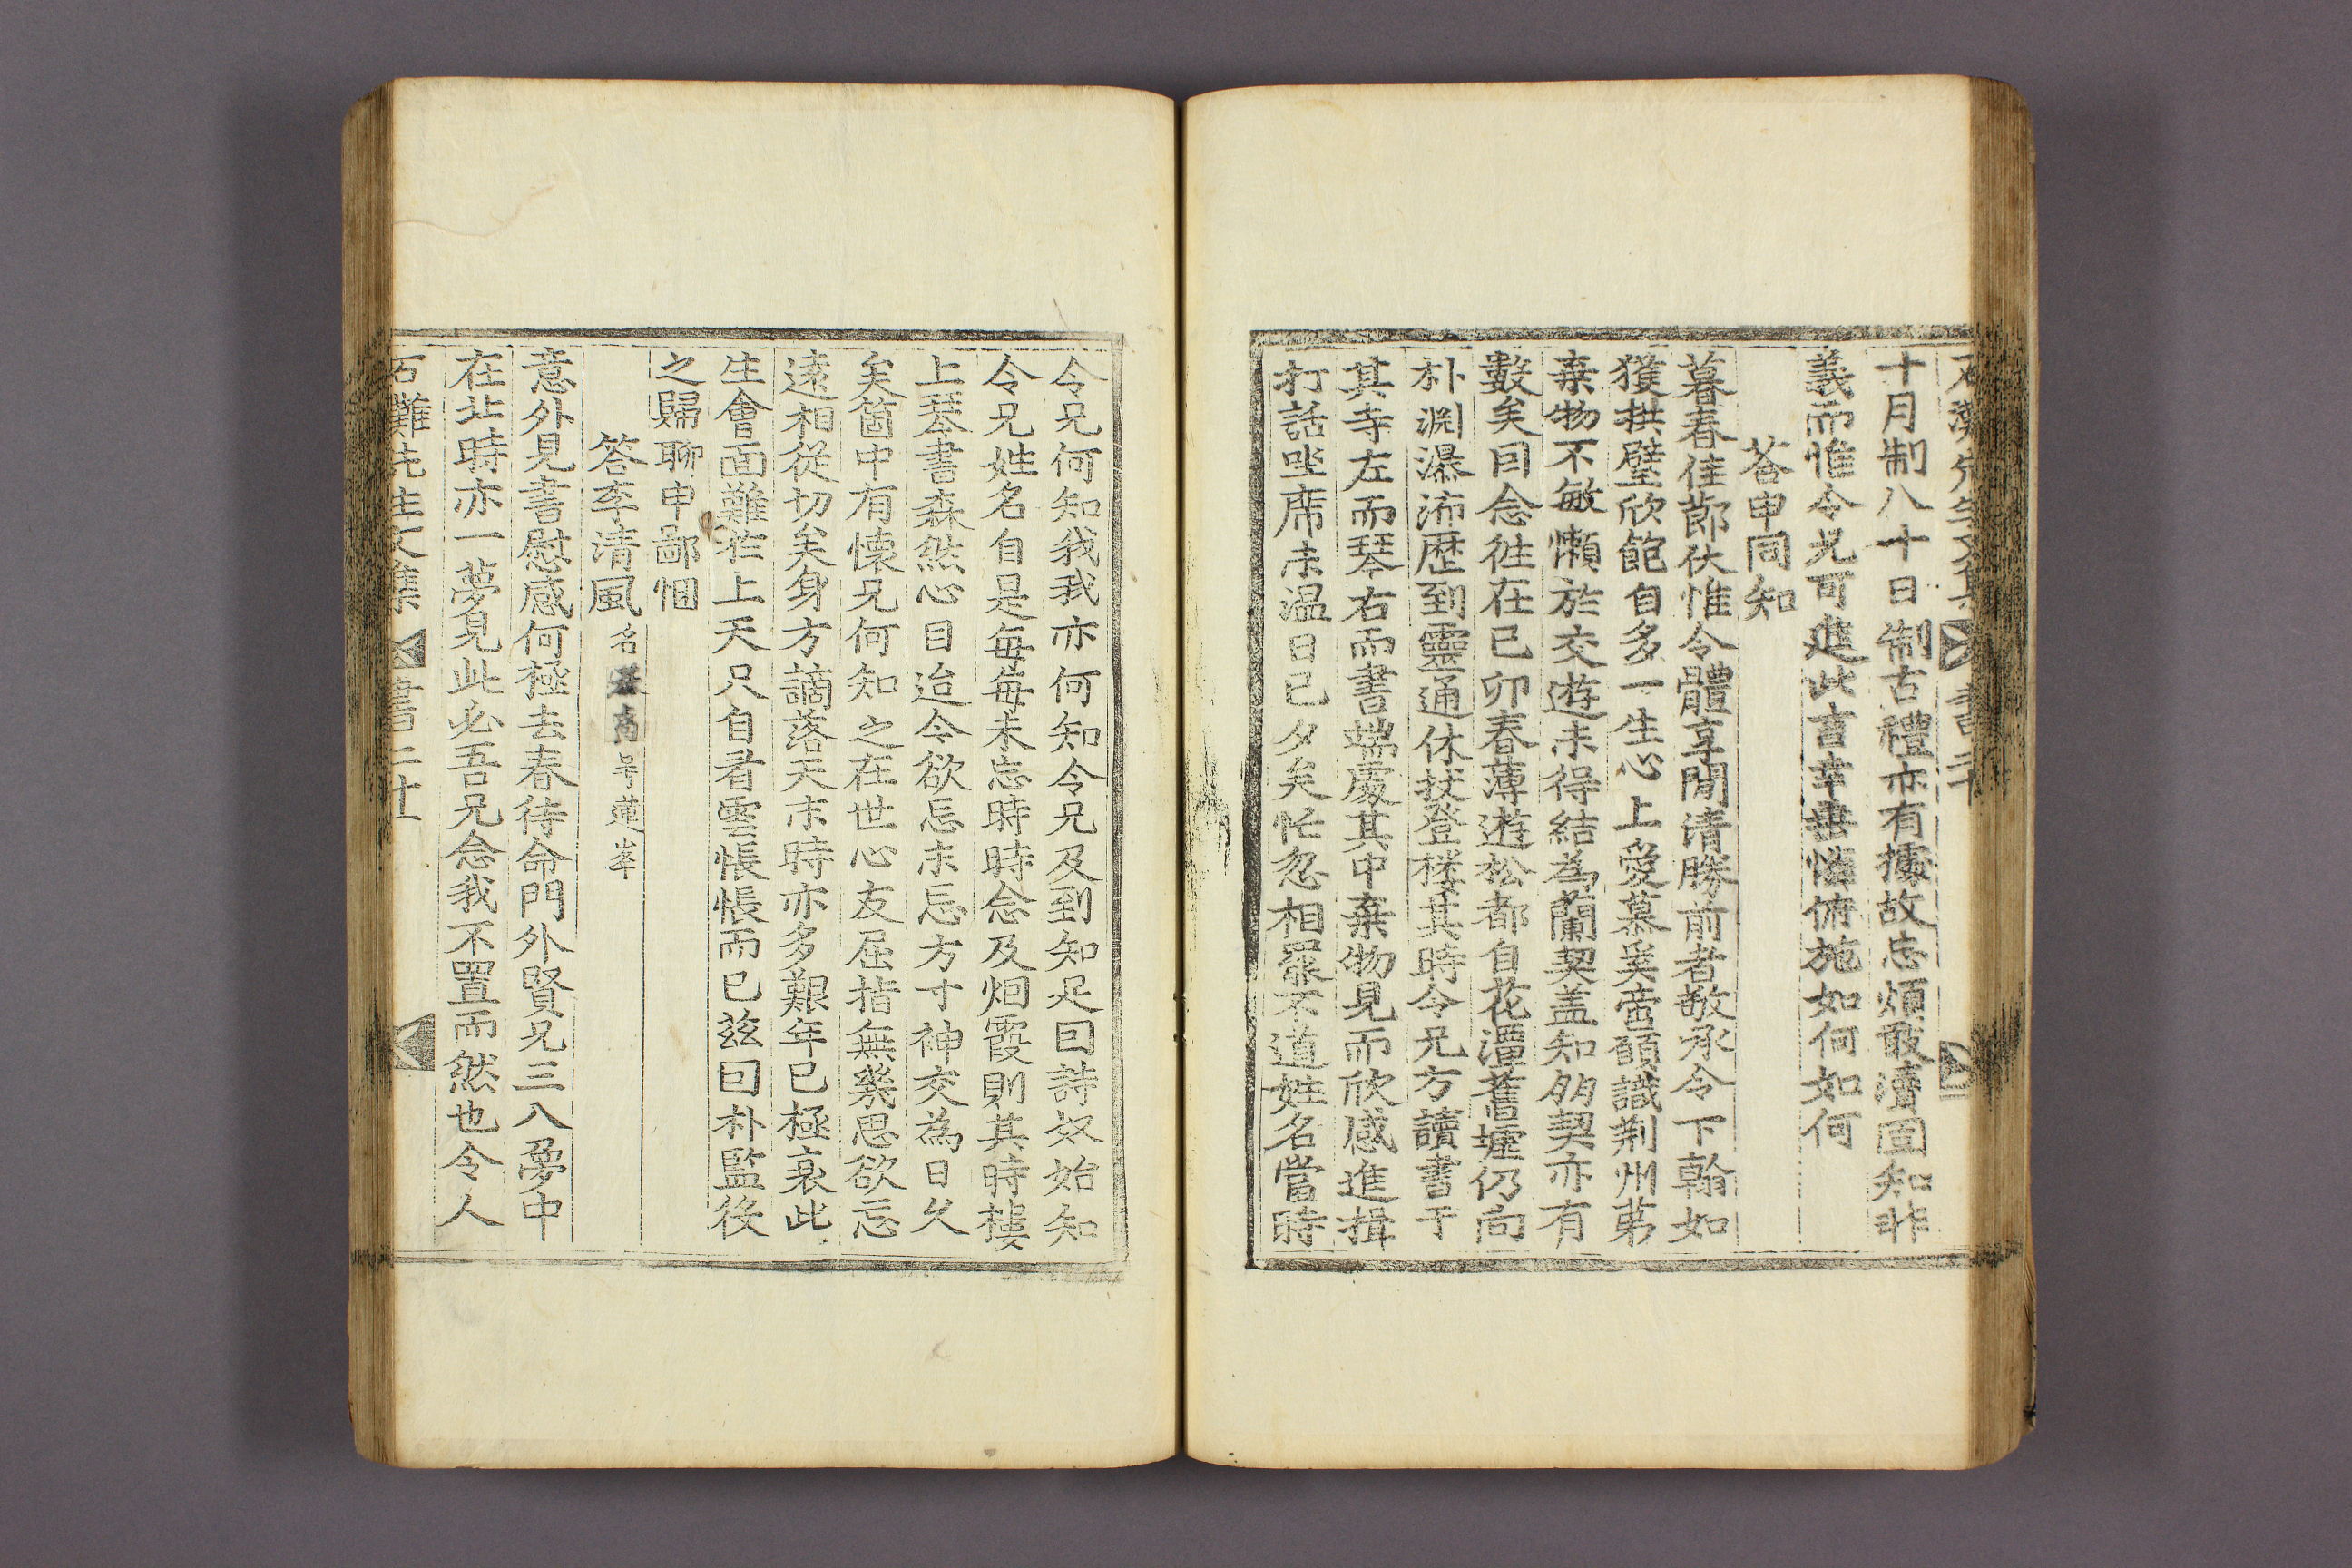 十月制八十日制古禮亦有據故忘煩敢瀆固知非
義而惟令兄可進此言幸垂憐俯施如何如何
答申同知
暮春佳節伏惟令體享閒清勝前者敬承令下翰如
獲拱璧欣飽自多一生心上愛慕奚啻願識荆州第
棄物不敏懶於交遊未得結為蘭契盖知舊契亦有
數矣囙念徃在已卯春薄遊松都自花潭舊墟仍向
朴渊瀑沛歷到靈通休挍登樓其時令兄方讀書于
其寺左而琴右而書端處其中棄物見而欣感進揖
打話坐席未温日已夕矣忙忽相罷不道姓名當時
令兄何知我我亦何知令兄及到知足囙詩奴始知
令兄姓名自是每每未忘時時念及烟霞則其時樓
上琴書森然心目迨今欲忘未忘方寸神交為日久
矣箇中有懐兄何知之在世心友屈指無幾思欲忘
遠相從切矣身方謫落天末時亦多艱年已極衰此
生會面難於上天只自看雲悵悵而已兹囙朴監役
之歸聊申鄙悃
答李清風名 号蓮峯
意外見書慰感何極去春待命門外賢兄三八夢中
在北時亦一夢見此必吾兄念我不置而然也令人
石灘先生文集 書二十